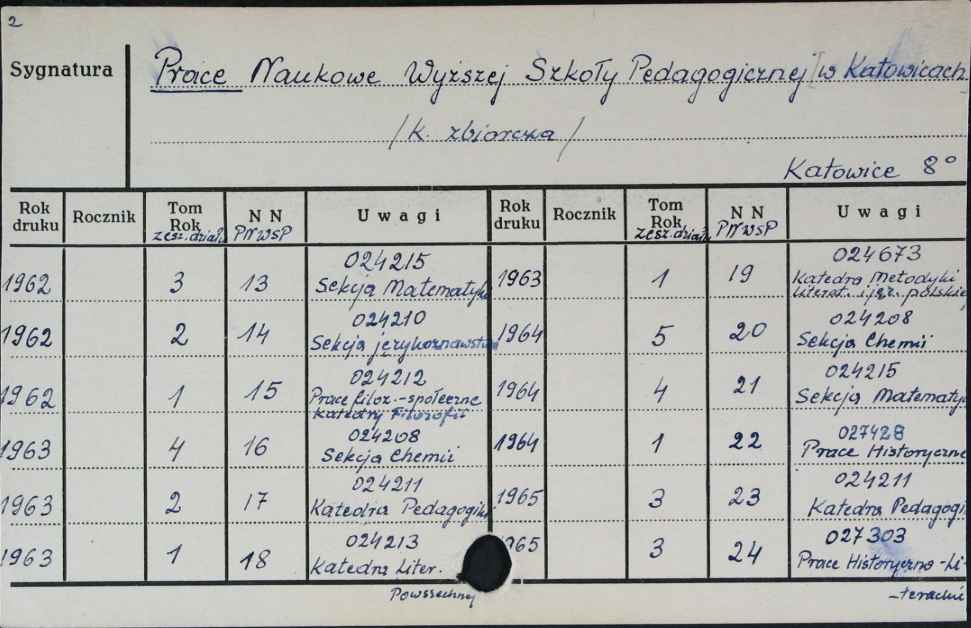 2
Sygnatura
Prace Naukowe Wyższej Szkoły Pedagogicznej w Katowicach
/ k. zbiorcza /
Katowice 8°
Rok druku Rocznik Tom Rok zesz. działu N N PNWSP Uwagi Rok druku Rocznik Tom Rok zesz. działu N N PNWSP Uwagi
1962 3 13 024215 Sekcja Matematyki
1962 2 14 024210 Sekcja językoznawstwa
1962 1 15 024212 Prace filoz.-społeczne Katedry Filozofii
1963 4 16 024208 Sekcja Chemii
1963 2 17 024211 Katedra Pedagogiki
1963 1 18 024213 Katedra Liter. Powszechnej
1963 1 19 024673 Katedra Metodyki literat. i jęz. polskiej
1964 5 20 024208 Sekcja Chemii
1964 4 21 024215 Sekcja Matematy
1964 1 22 027428 Prace Historyczne
1965 3 23 024211 Katedra Pedagogi
1965 3 24 027303 Prace Historyczno-Li-
-terackie